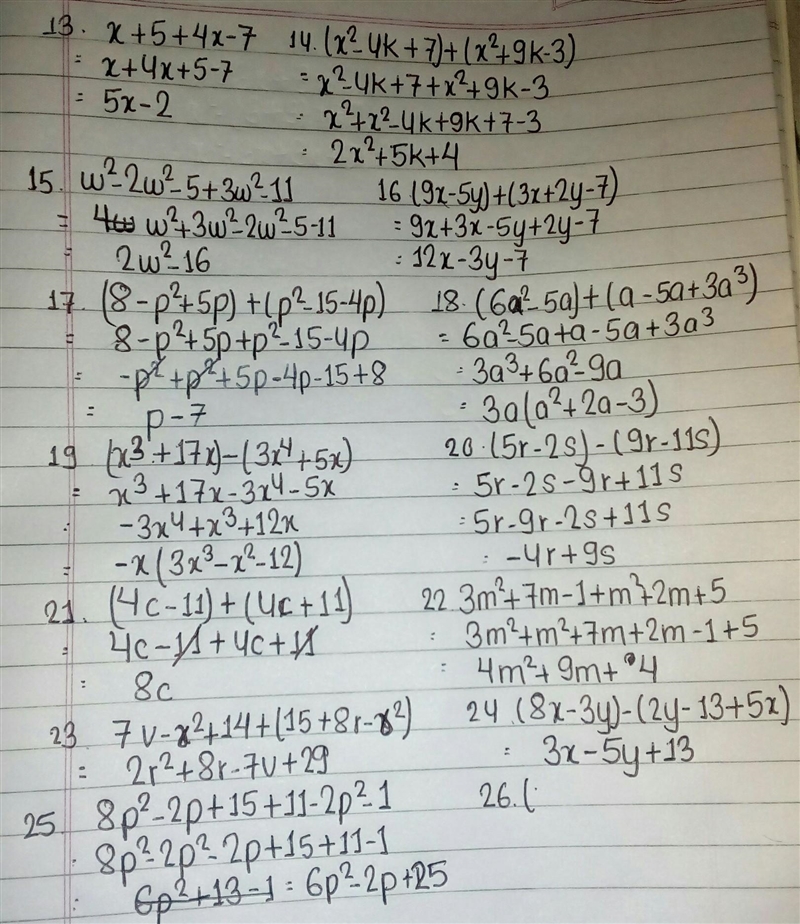 13. x+5+4x-7
= x+4x+5-7
= 5x-2
14. (x²-4k+7)+(x²+9k-3)
= x²-4k+7+x²+9k-3
= x²+x²-4k+9k+7-3
= 2x²+5k+4
15. w²-2w²-5+3w²-11
= w²+3w²-2w²-5-11
= 2w²-16
16 (9x-5y)+(3x+2y-7)
= 9x+3x-5y+2y-7
= 12x-3y-7
17. (8-p²+5p)+(p²-15-4p)
= 8-p²+5p+p²-15-4p
= -p²+p²+5p-4p-15+8
= p-7
18. (6a²-5a)+(a-5a+3a³)
= 6a²-5a+a-5a+3a³
= 3a³+6a²-9a
= 3a(a²+2a-3)
19 (x³+17x)-(3x⁴+5x)
= x³+17x-3x⁴-5x
: -3x⁴+x³+12x
= -x(3x³-x²-12)
20.(5r-2s)-(9r-11s)
= 5r-2s-9r+11s
= 5r-9r-2s+11s
= -4r+9s
21. (4c-11)+(4c+11)
= 4c-11+4c+11
= 8c
22 3m²+7m-1+m²+2m+5
= 3m²+m²+7m+2m-1+5
= 4m²+9m+4
23 7v-r²+14+(15+8r-r²)
= 2r²+8r-7v+29
24 (8x-3y)-(2y-13+5x)
= 3x-5y+13
25. 8p²-2p+15+11-2p²-1
: 8p²-2p²-2p+15+11-1
: 6p²+13-1 = 6p²-2p+25
26.(